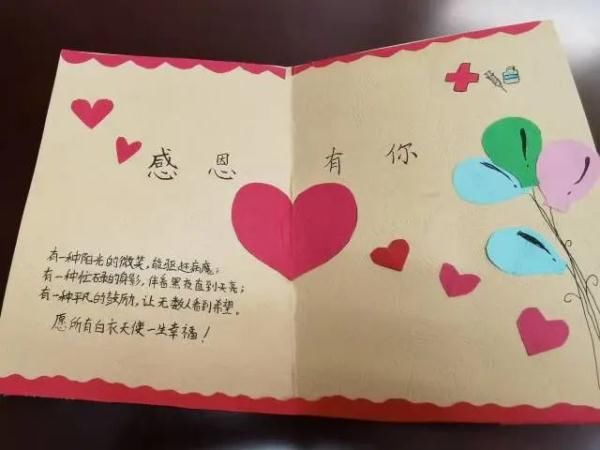 感恩有你
有一种阳光的微笑，能驱赶病魔；
有一种忙碌的身影，伴着黑夜直到天亮；
有一种平凡的鼓励，让无数人看到希望。
愿所有白衣天使一生幸福！